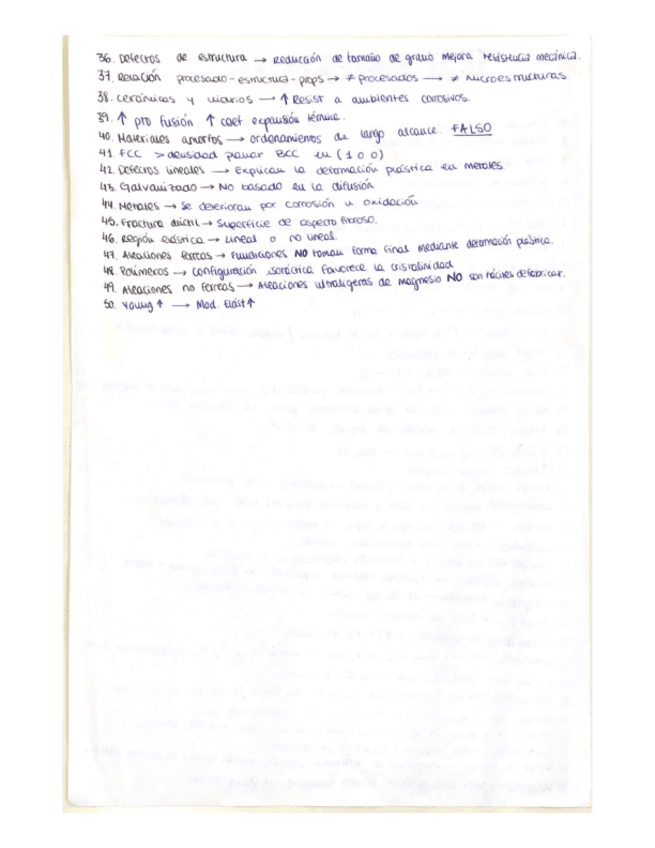 36. Defectos de estructura → Reducción de tamaño de grano mejora resistencia mecánica.
37. Relación procesado-estructura-props → ≠ procesados → ≠ microestructuras.
38. Cerámicos y vidrios → ↑ Resist a ambientes corrosivos.
39. ↑ pto fusión ↑ coef expansión térmica.
40. Materiales amorfos → ordenamientos de largo alcance. FALSO
41. FCC > densidad planar BCC en (1 0 0)
42. Defectos lineales → explican la deformación plástica en metales.
43. Galvanizado → No basado en la difusión
44. Metales → se deterioran por corrosión u oxidación
45. Fractura dúctil → Superficie de aspecto fibroso.
46. Región elástica → Lineal o no lineal.
47. Aleaciones férreas → Fundiciones NO toman forma final mediante deformación plástica.
48. Polímeros → Configuración isotáctica favorece la cristalinidad
49. Aleaciones no férreas → Aleaciones ultraligeras de magnesio NO son fáciles de fabricar.
50. Young ↑ → Mod. Elást ↑